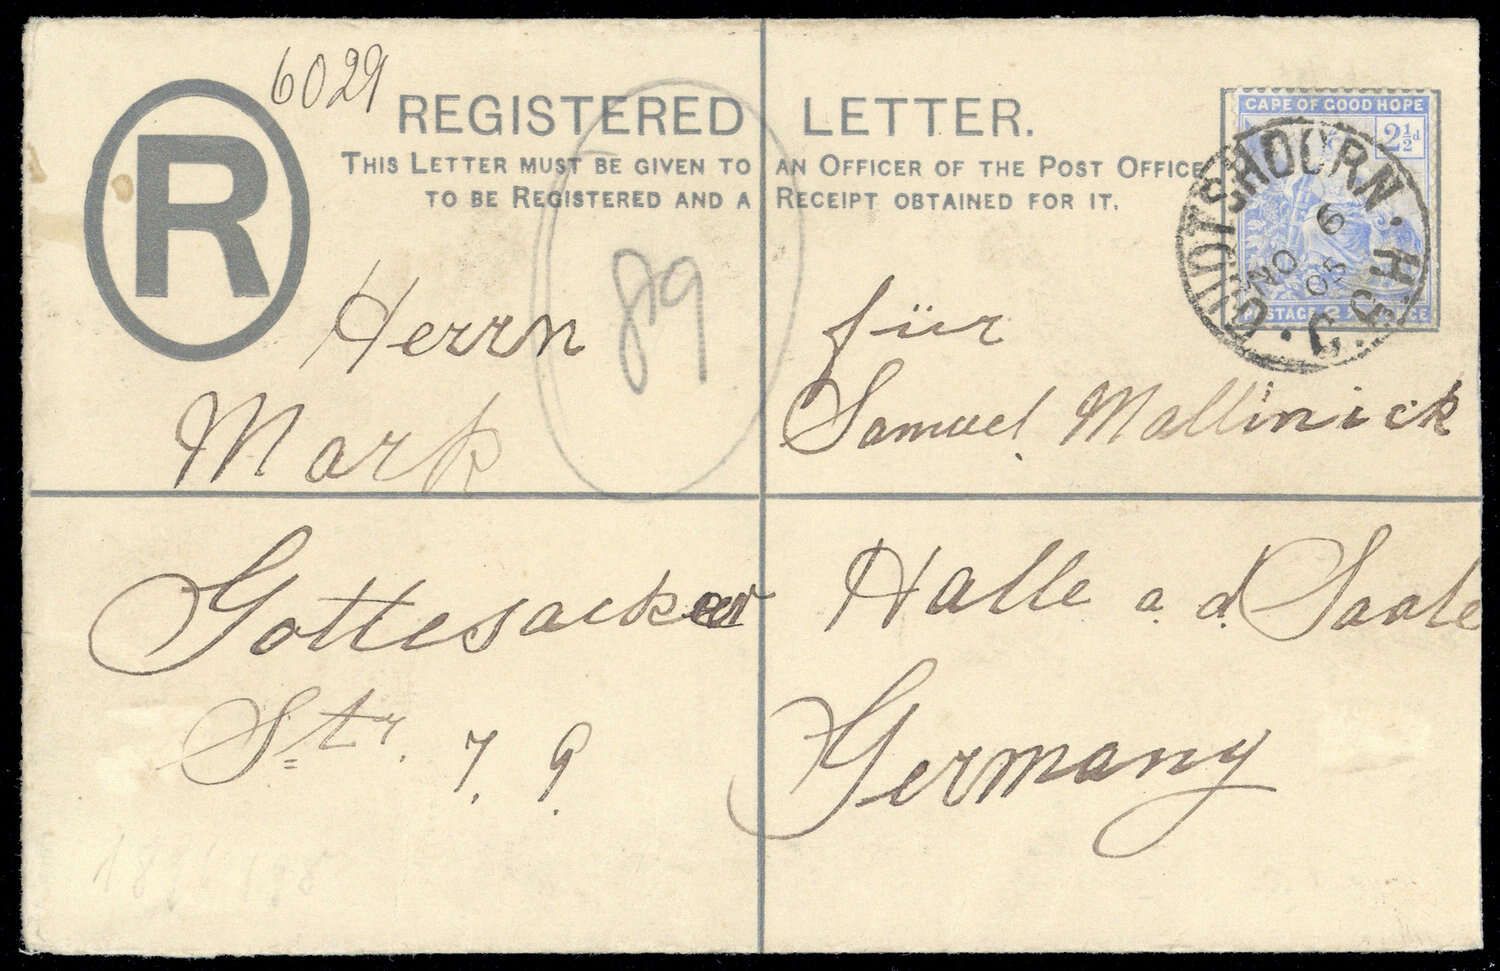 R
6029
REGISTERED LETTER.
THIS LETTER MUST BE GIVEN TO AN OFFICER OF THE POST OFFICE
TO BE REGISTERED AND A RECEIPT OBTAINED FOR IT.
CAPE OF GOOD HOPE
2½d
OUDTSHOORN · C.G.H.
NO 6
05
POSTAGE 2½ PENCE
89
Herrn für
Mark Samuel Mallinick
Gottesacker Halle a. d Saale
Str. 7. 9. Germany